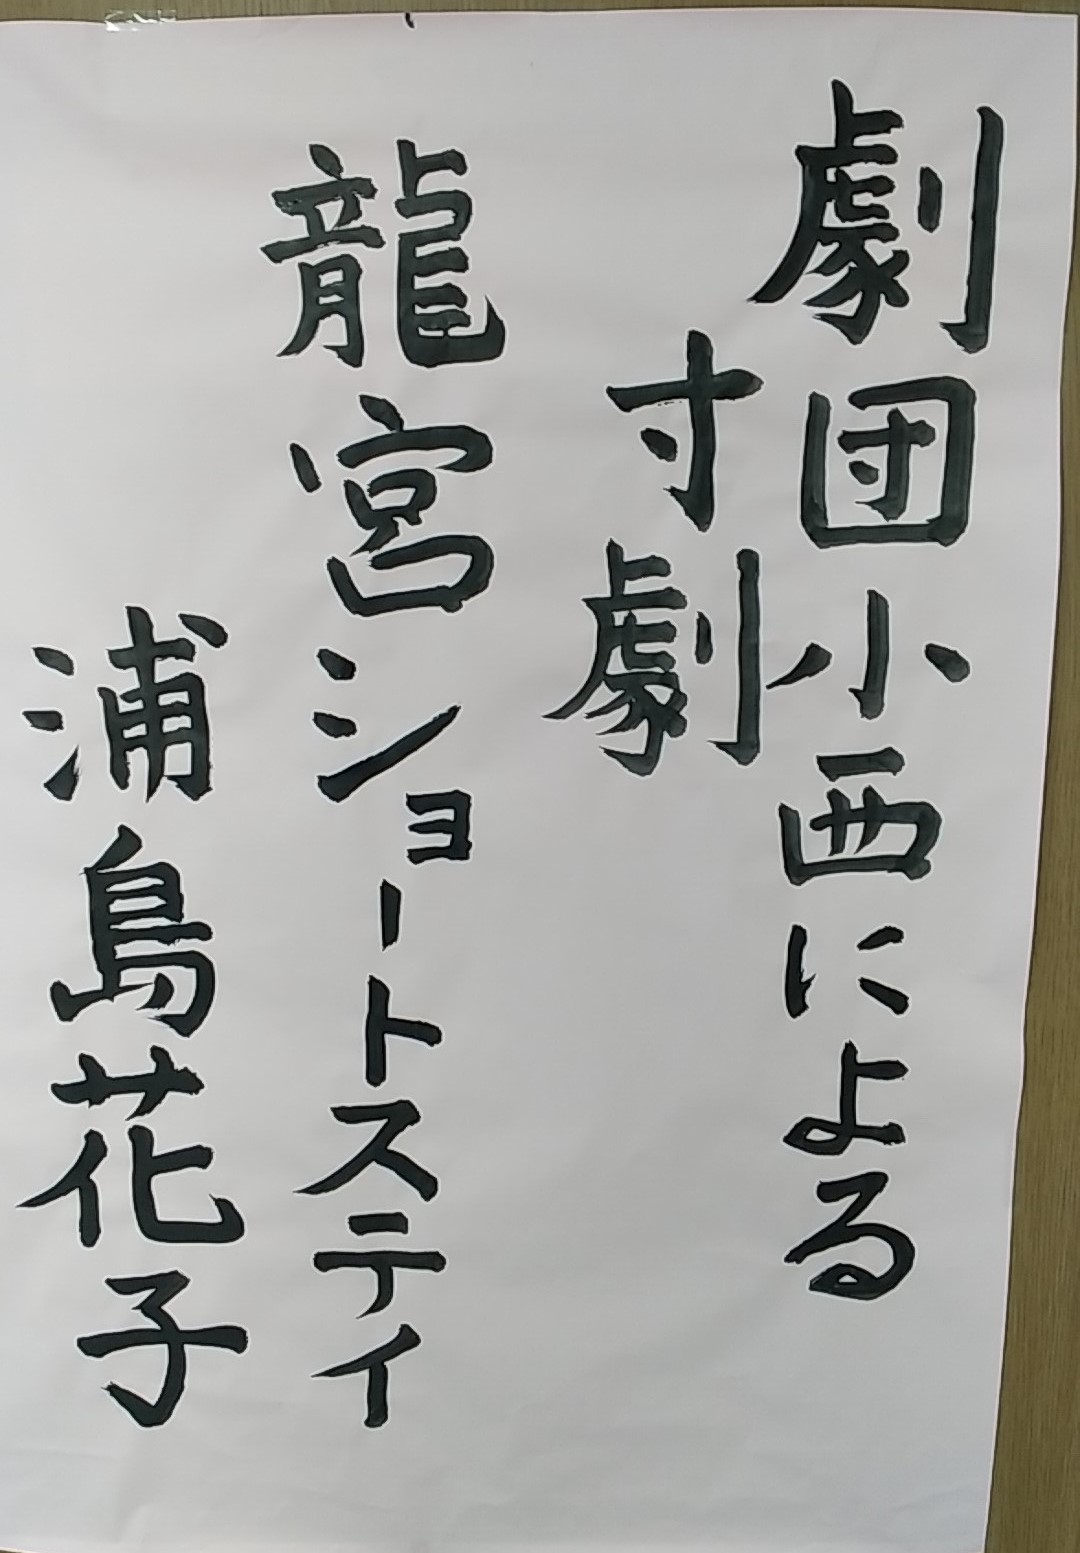 劇団小西による
寸劇
龍宮ショートスティ
浦島花子